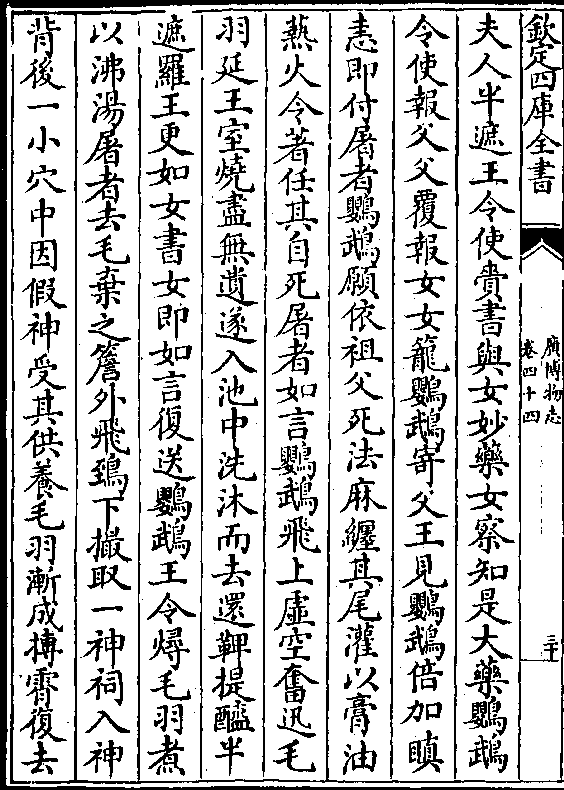 欽定四庫全書
廣博物志
卷四十四
三十
夫人半遮王令使賷書與女妙藥女察知是大藥鸚鵡
令使報父父覆報女女籠鸚鵡寄父王見鸚鵡倍加瞋
恚即付屠者鸚鵡願依祖父死法麻纏其尾灌以膏油
爇火令著任其自死屠者如言鸚鵡飛上虛空奮迅毛
羽延王室燒盡無遺遂入池中洗沐而去還鞞提醯半
遮羅王更如女書女即如言復送鸚鵡王令燖毛羽煮
以沸湯屠者去毛棄之簷外飛鵄下撮取一神祠入神
背後一小穴中因假神受其供養毛羽漸成摶霄復去